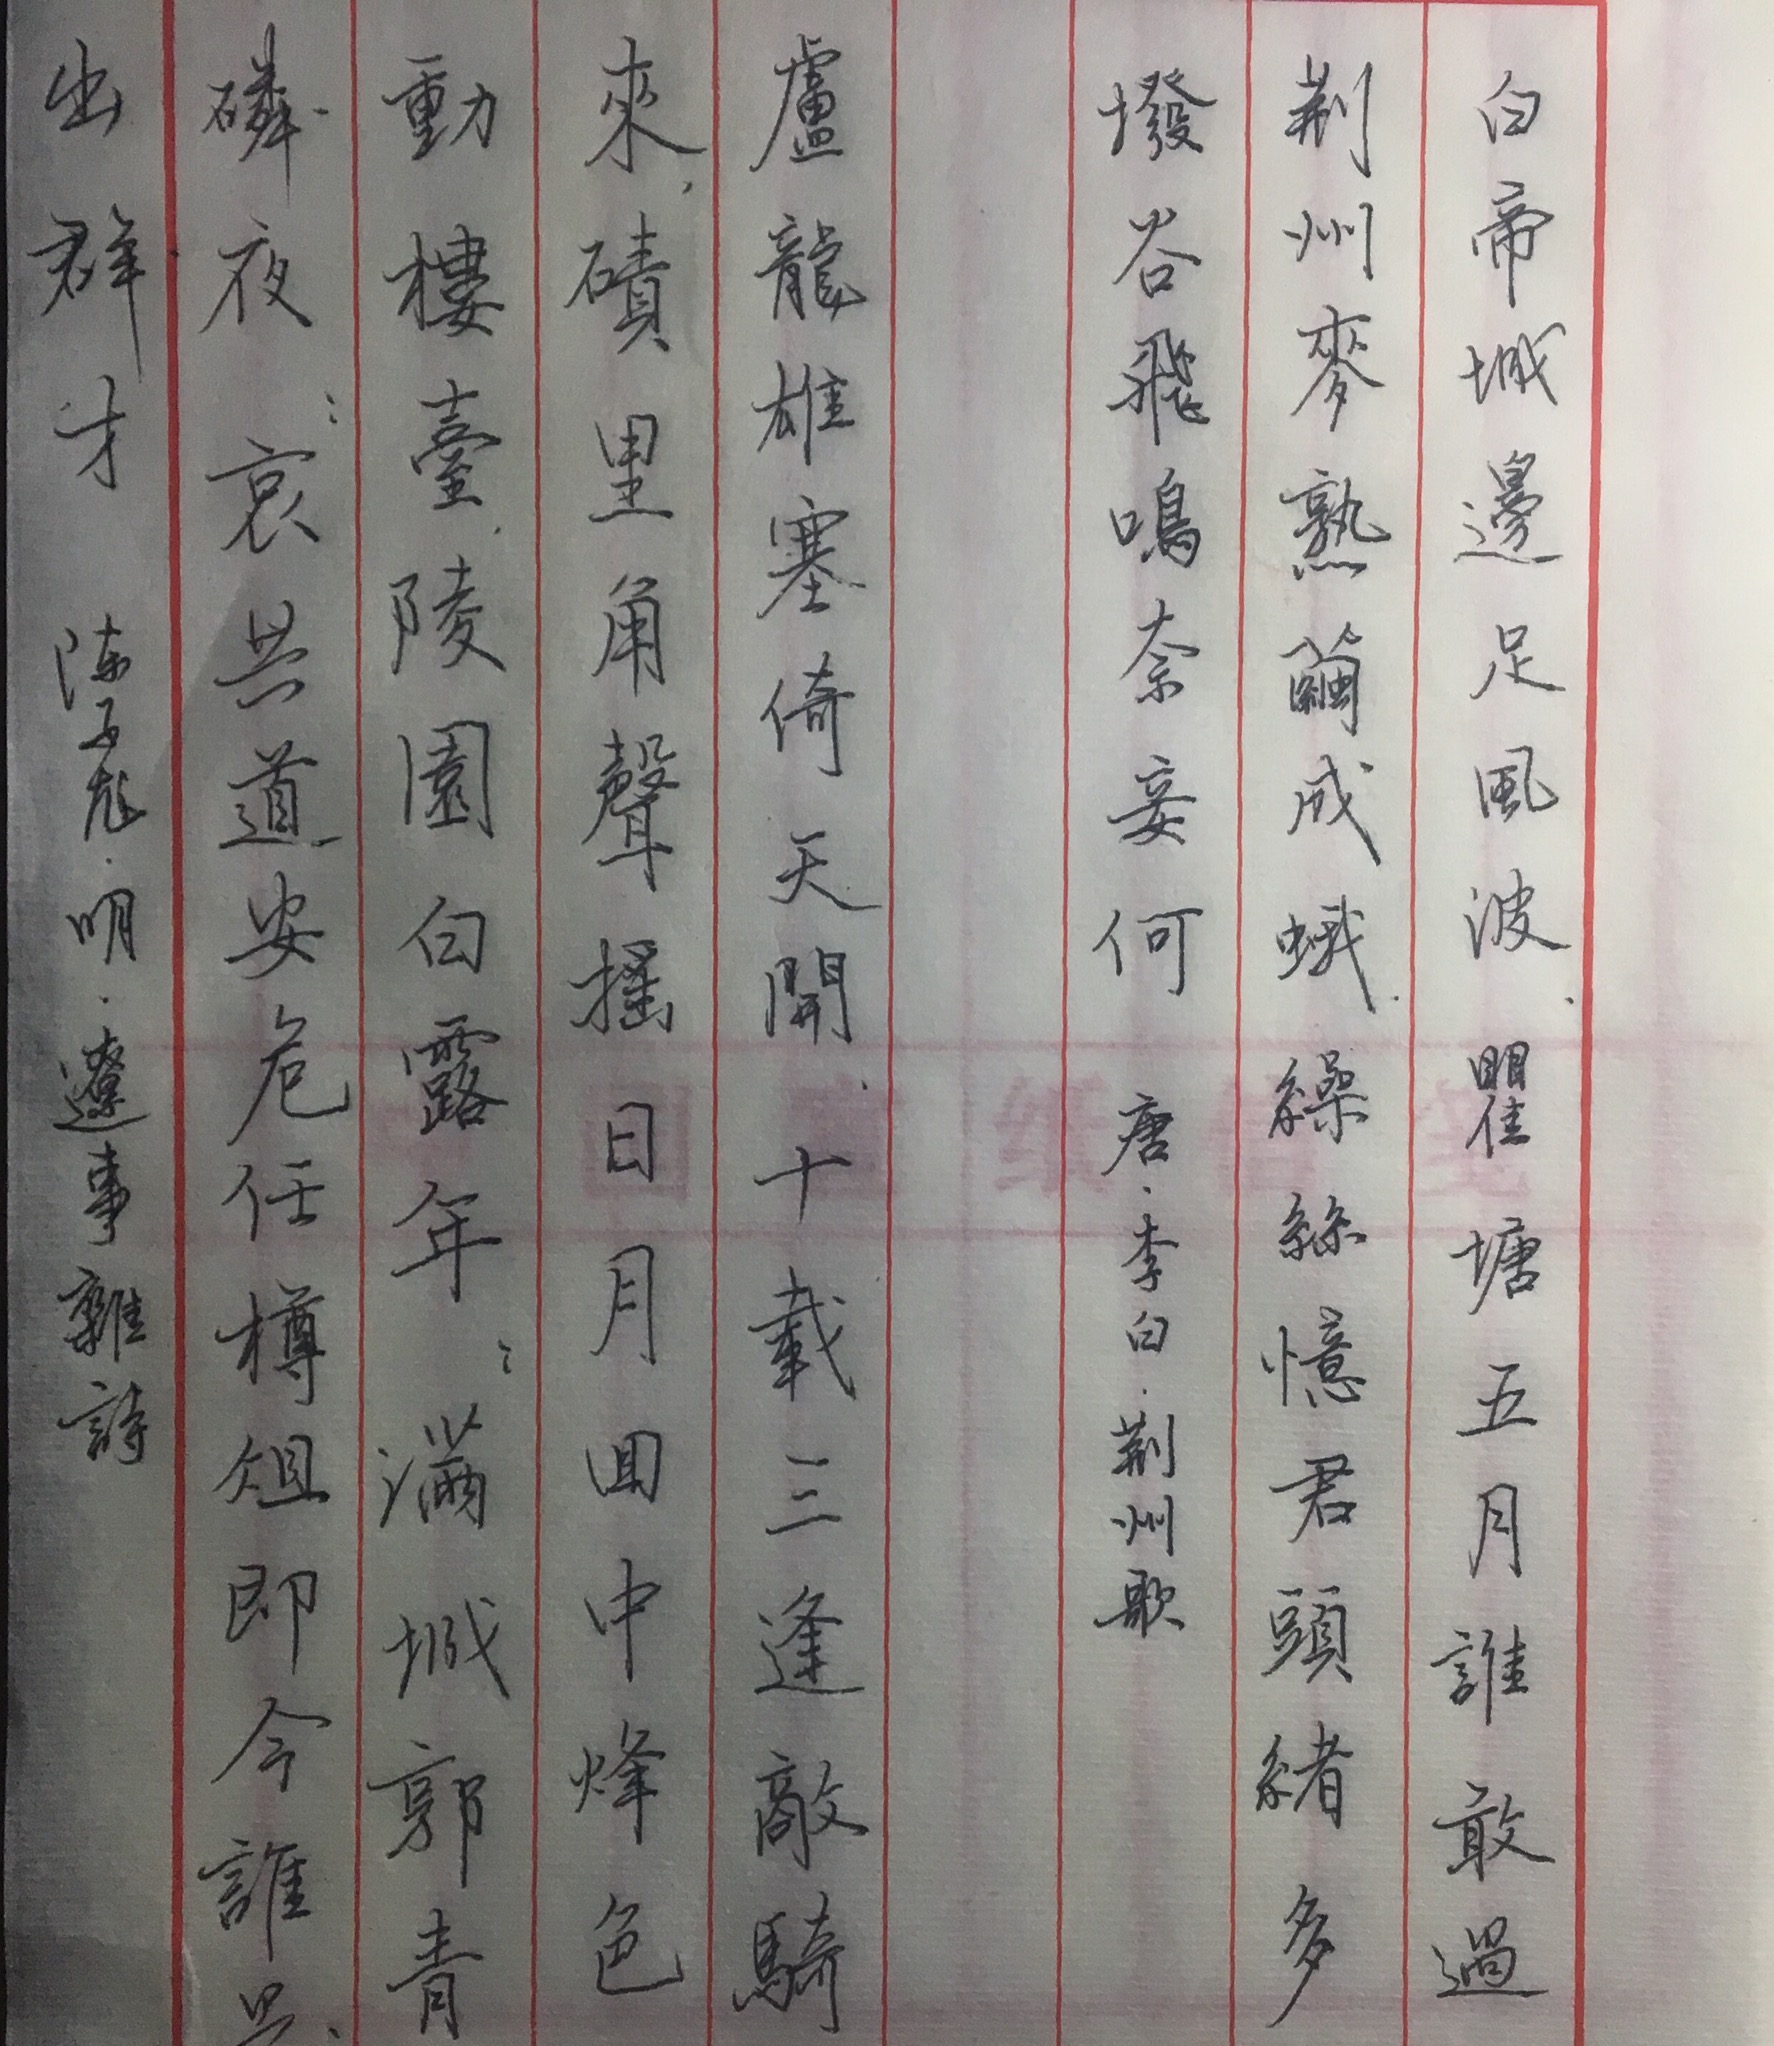 白帝城邊足風波瞿塘五月誰敢過
荆州麥熟繭成蛾繰絲憶君頭緒多
撥谷飛鳴奈妾何 唐·李白·荆州歌
盧龍雄塞倚天開十載三逢敵騎
來磧里角聲摇日月回中烽色
動樓臺陵園白露年:滿城郭青
磷夜:哀共道安危任樽俎即今誰是
出群才 陳子龍·明·遼事雜詩